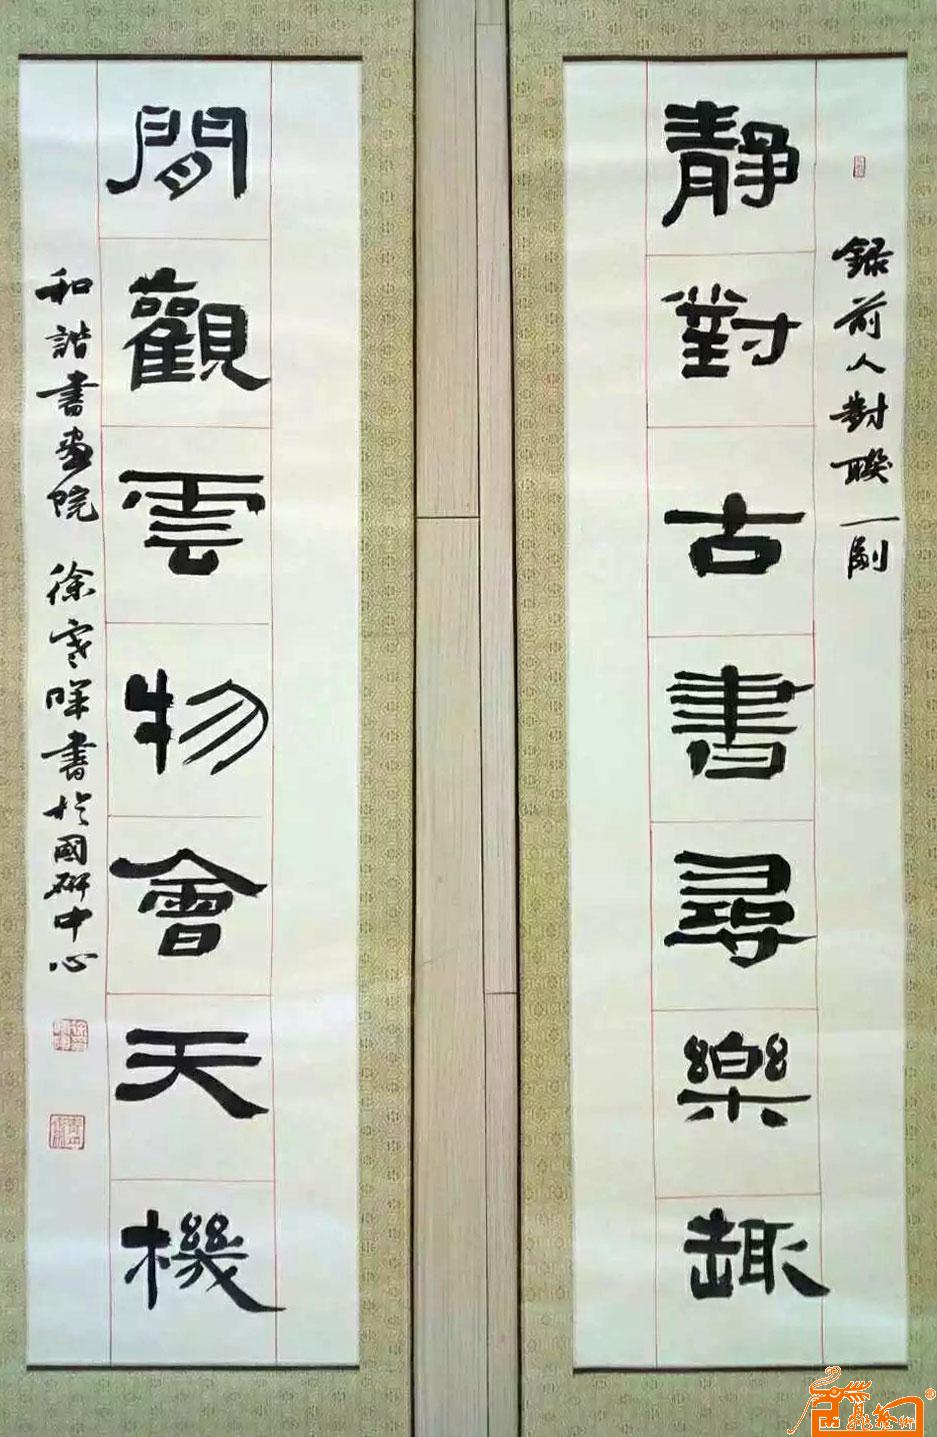 錄前人對聯一副
靜對古書尋樂趣
閒觀雲物會天機
和諧書畫院 徐寒暉書於國研中心